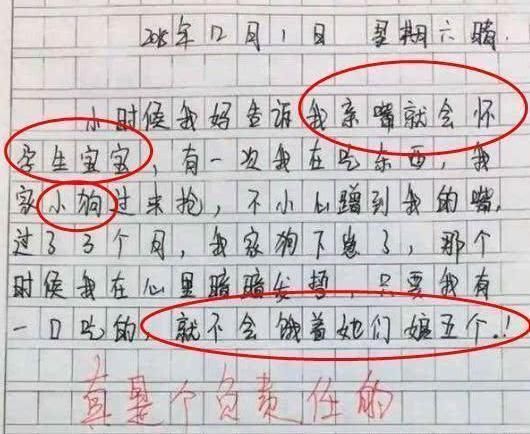 2018年12月1日 星期六晴.
小时候我妈告诉我亲嘴就会怀
孕生宝宝，有一次我在吃东西，我
家小狗过来抢，不小心蹭到我的嘴，
过了3个月，我家狗下崽了，那个
时候我在心里暗暗发誓，只要我有
一口吃的，就不会饿着她们娘五个.!
真是个负责任的